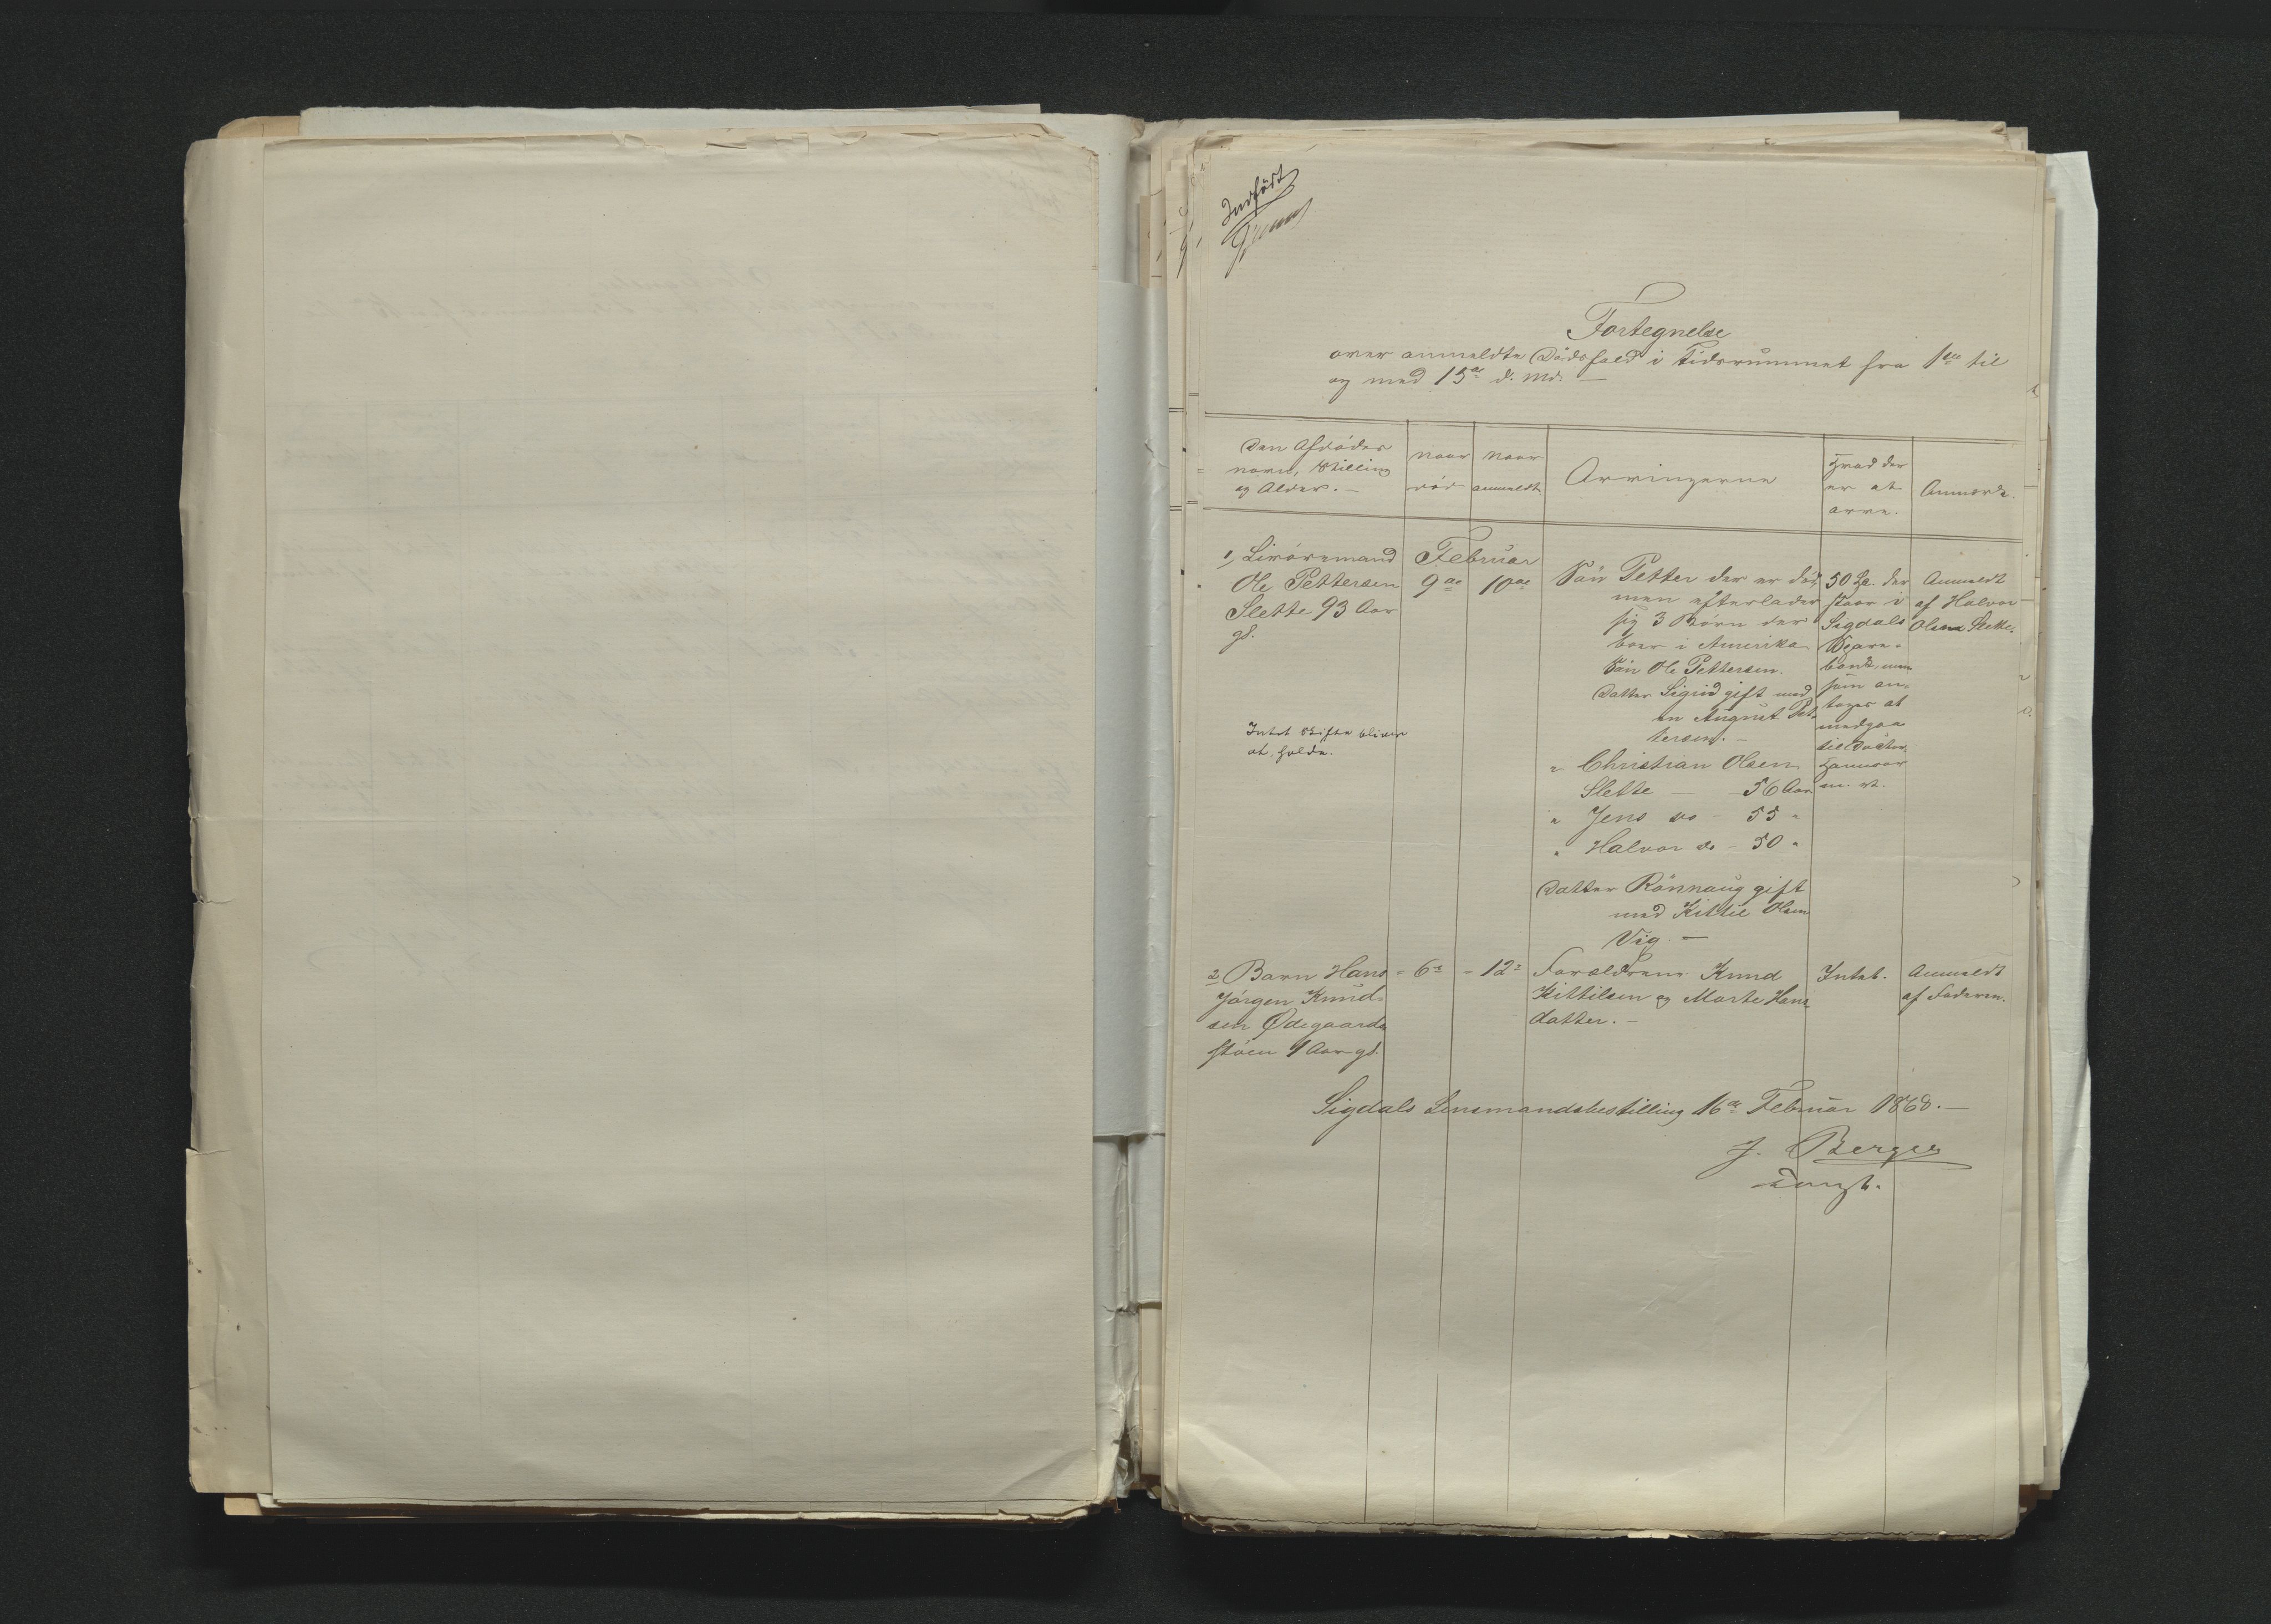 Indført
Fortegnelse
over anmeldte Dödsfald i Tidsrummet fra 1ste til
og med 15de d. Md. —
Den Afdödes
navn, Stilling
og Alder. —
naar
död
naar
anmeldt
Arvingerne
Hvad der
er at
arve.
Anmærkn.
1, Livöremand
Ole Pettersen
Slette 93 Aar
gl.
Februar
9de
10de
Sön Petter der er död
men efterlader
sig 3 Börn der
boer i Amerika
Sön Ole Pettersen.
Datter Sigrid gift med
en August Pet-
tersen. —
" Christian Olsen
Slette — 56 Aar
" Jens do - 55 "
" Halvor do - 50 "
Datter Rönnaug gift
med Kittil Olsen
Vig. —
50 Spd. der
staar i
Sigdals
Spare-
bank, men
som an-
tages at
medgaa
til Doctor
Honorar
m. v.
Anmeldt
af Halvor
Olsen Slette.
Intet Skifte bliver
at holde.
2 Barn Hans
Jörgen Knud-
sen Ødegaards
stöen 1 Aar gl.
" 6te
" 12te
Forældrene Knud
Kittilsen og Marte Hans
datter. —
Intet.
Anmeldt
af Faderen.
Sigdals Lensmandsbestilling 16de Februar 1868. —
J. Berger